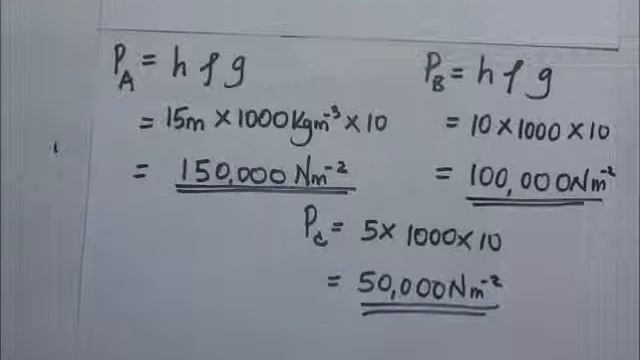 P_A = hρg
= 15m × 1000Kgm⁻³ × 10
= 150,000 Nm⁻²
P_B = hρg
= 10 × 1000 × 10
= 100,000Nm⁻²
P_C = 5 × 1000 × 10
= 50,000Nm⁻²